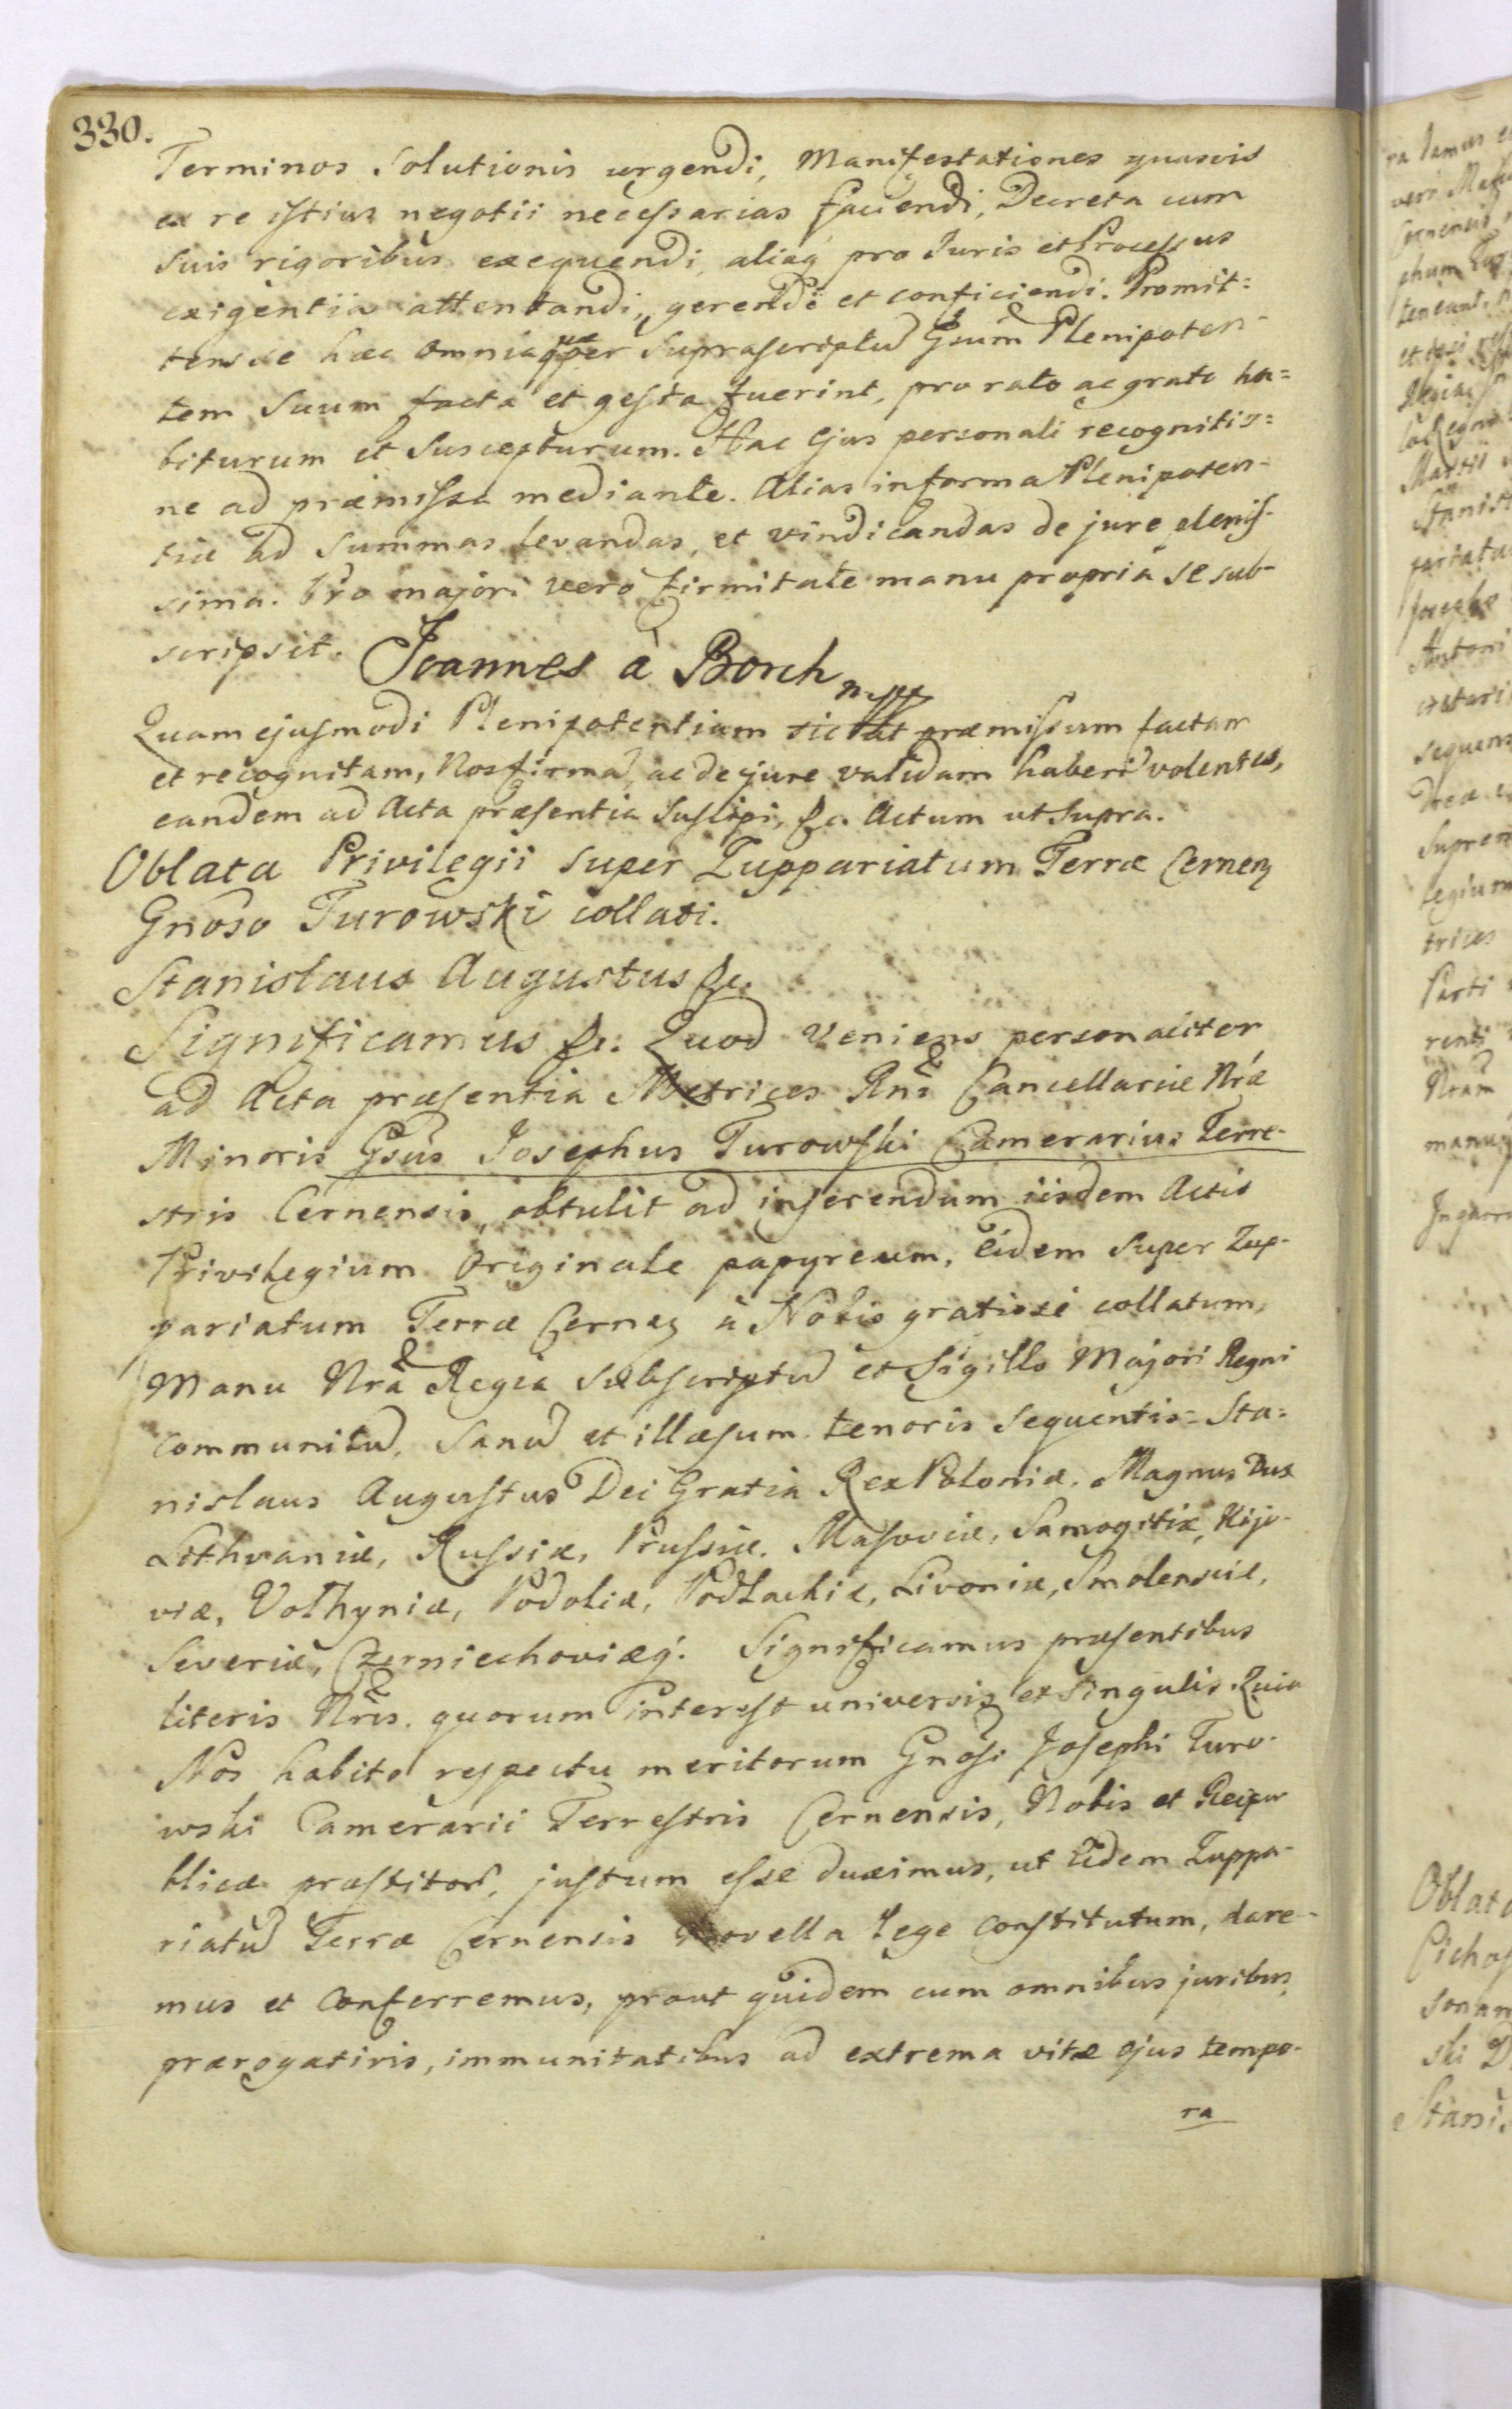 330.
Terminos Solutionis urgendi, Manifestationes quasvis
ex re istius negotii necessarias faciendi, Decreta cum
Suis rigoribus exequendi, aliaq́ pro Juris et Processus
exigentia attentandi, gerendi et conficiendi. Promit=
tens se hæc omnia quæ per Suprascriptũ Gsum Plenipoten-
tem Suum facta et gesta fuerint, pro rato ac grato ha=
biturum et Suscepturum. Hac Ejus personali recognitio=
ne ad præmissa mediante. Alias in forma Plenipoten-
tiæ ad Summas levandas, et vindicandas de jure plenis-
sima. Pro majori vero firmitate manu propria se sub-
scripsit. Joannes à Borch mpp
Quam ejusmodi Plenipotentiam sic ut præmissum factam
et recognitam, Nos firmã ac de jure validam haberi volentes,
eandem ad Acta præsentia Suscipi, &c. Actum ut Supra.
Oblata Privilegii super Zuppariatum Terræ Cernen
Gnoso Turowski collati.
Stanislaus Augustus &c.
Significamus &c. Quod Veniens personaliter
ad Acta præsentia Metrices Rni Cancellariæ Nræ
Minoris Gsus Josephus Turowski Camerarius Terre-
stris Cernensis, obtulit ad inserendum iisdem Actis
Privilegium Originale papyreum, Eidem Super Zup-
pariatum Terræ Cernen à Nobis gratiose collatum,
Manu Nra Regia Subscriptũ et Sigillo Majori Regni
communitũ, Sanũ et illæsum tenoris Sequentis= Sta=
nislaus Augustus Dei Gratia Rex Poloniæ, Magnus Dux
Lithvaniæ, Russiæ, Prussiæ, Masoviæ, Samogitiæ, Kijo-
viæ, Volhyniæ, Podoliæ, Podlachiæ, Livoniæ, Smolensciæ,
Severiæ, Czerniechoviæq́. Significamus præsentibus
literis Nris. quorum interest universis et Singulis. Quia
Nos habito respectu meritorum Gnosi Josephi Turo-
wski Camerarii Terrestris Cernensis, Nobis et Reipu
blicæ præstitorũ, justum esse duximus, ut Eidem Zuppa-
riatũ Terræ Cernensis Novella Lege Constitutum, dare-
mus et Conferremus, prout quidem cum omnibus juribus,
prærogativis, immunitatibus ad extrema vitæ ejus tempo-
ra